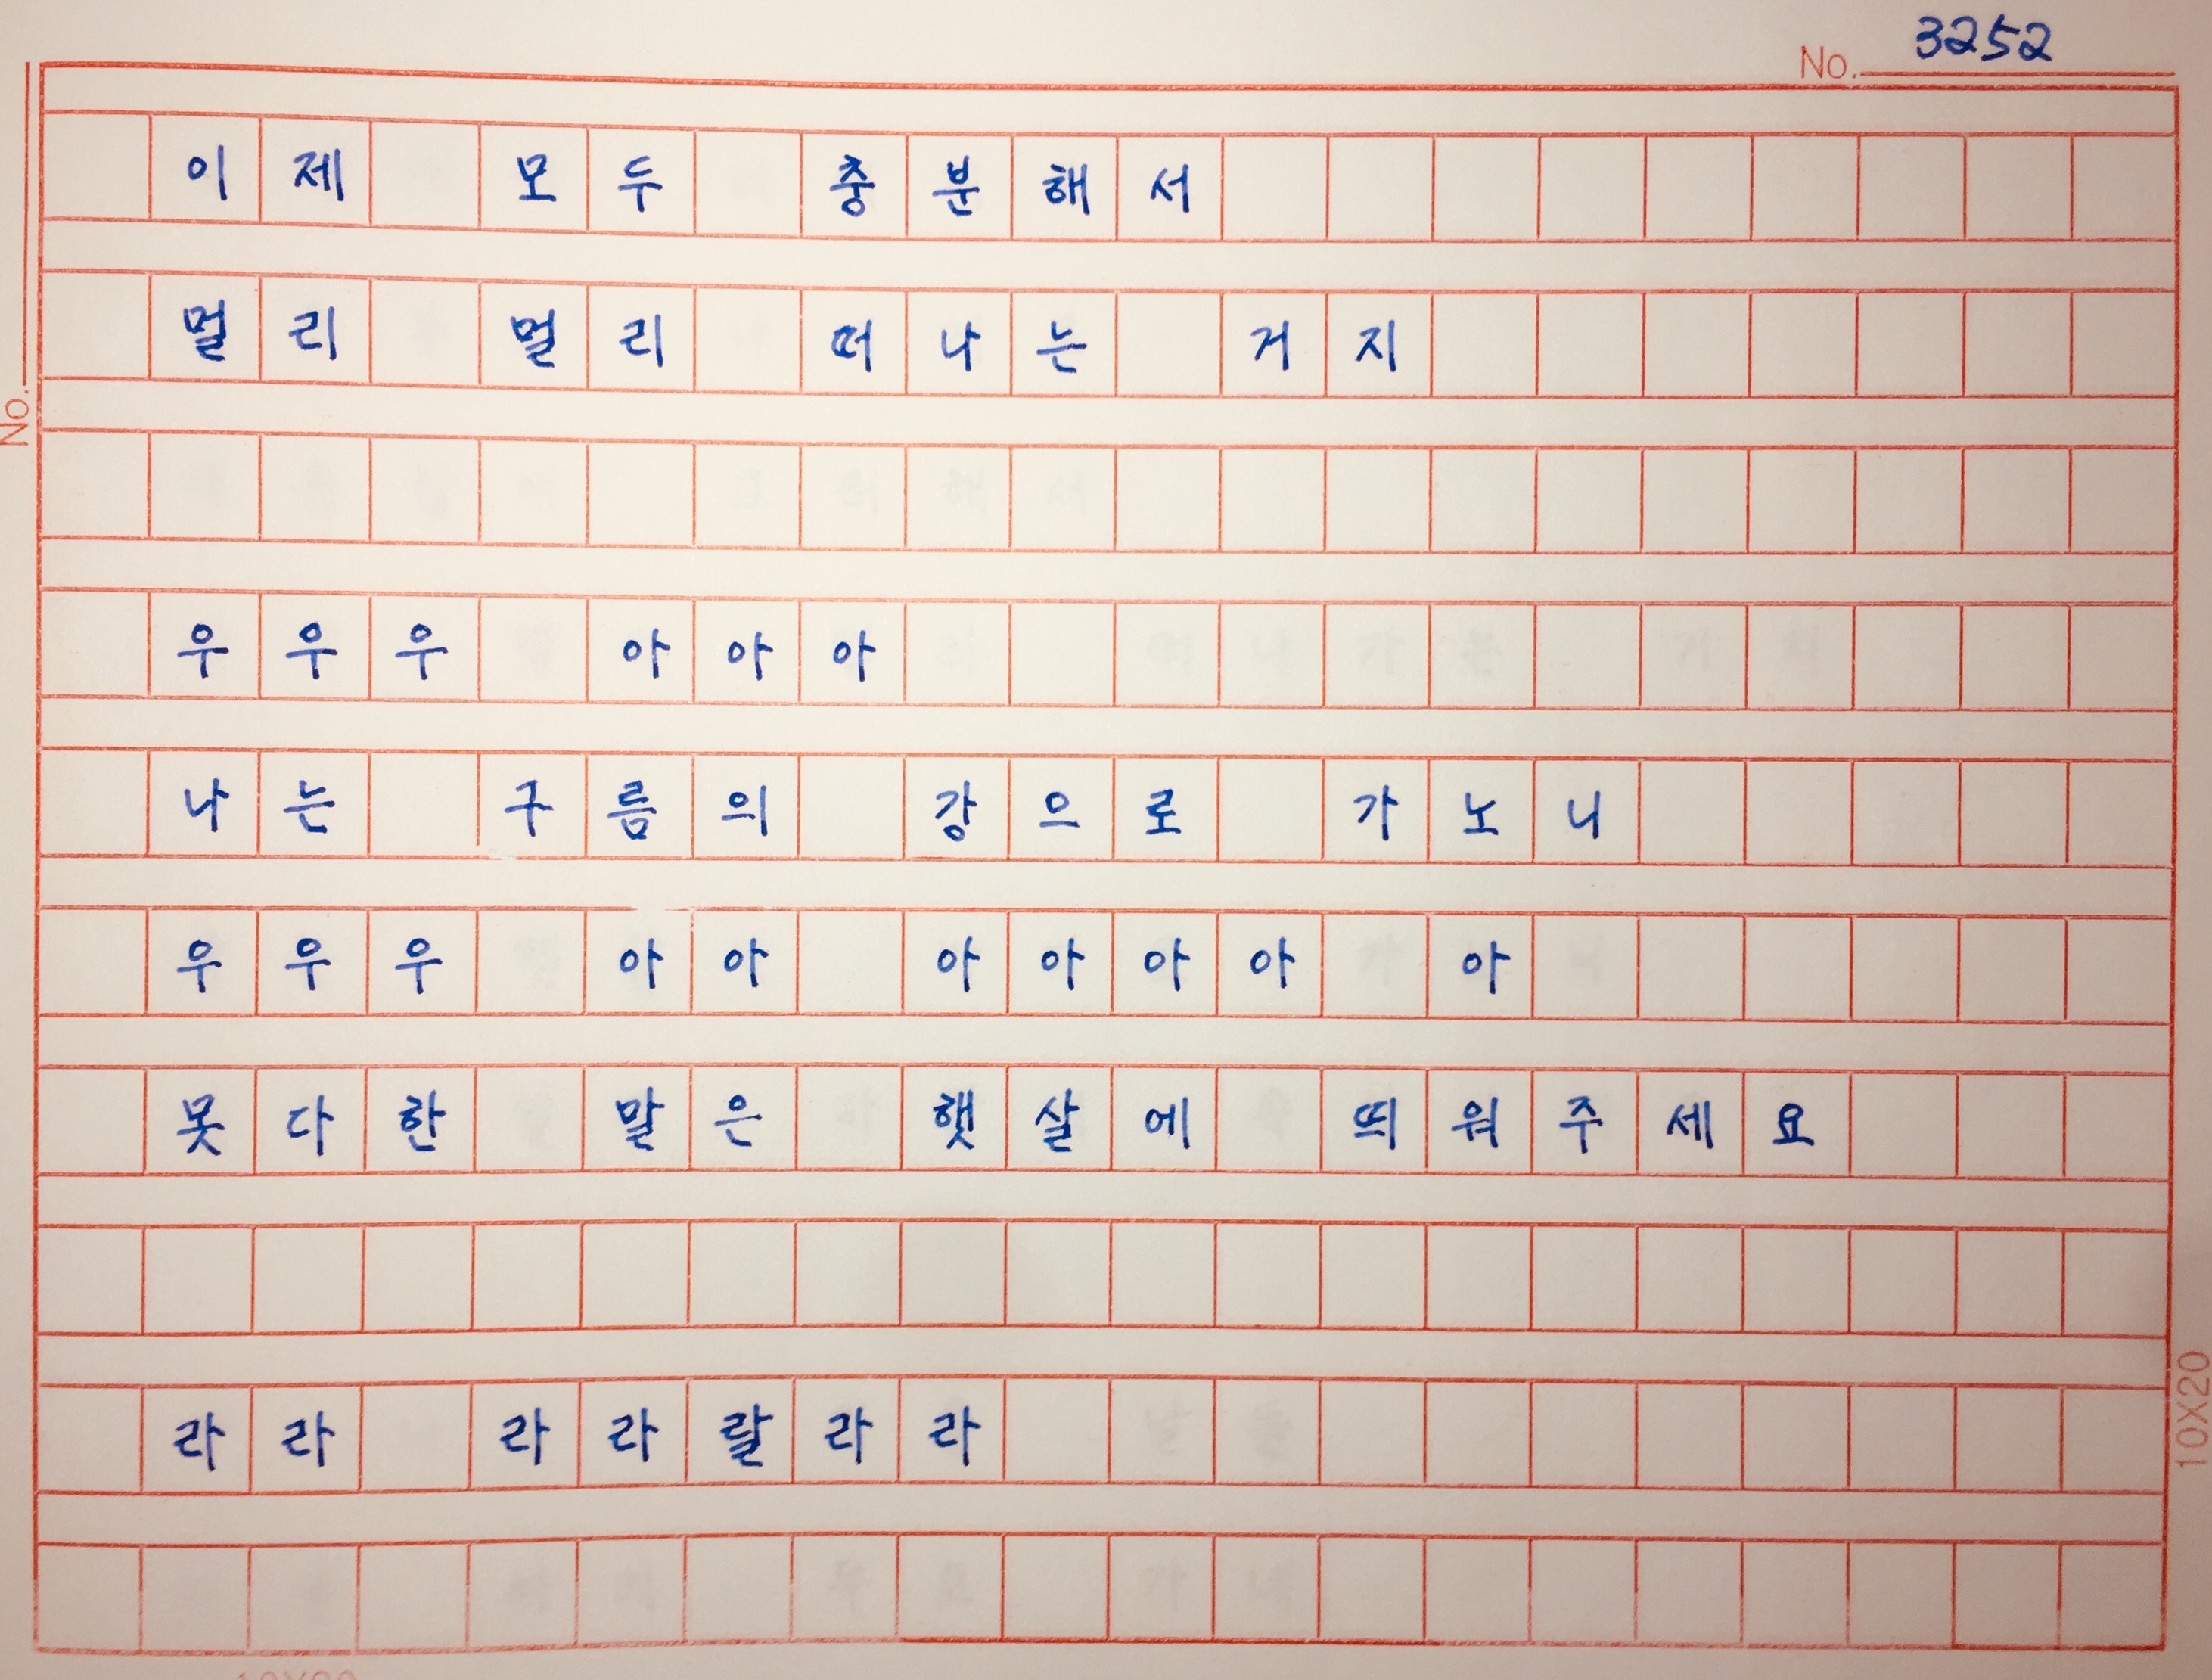 No. 3252
이제 모두 충분해서
멀리 멀리 떠나는 거지
No.
우우우 아아아
나는 구름의 강으로 가노니
우우우 아아 아아아아 아
못다한 말은 햇살에 띄워주세요
라라 라라랄라라
10X20